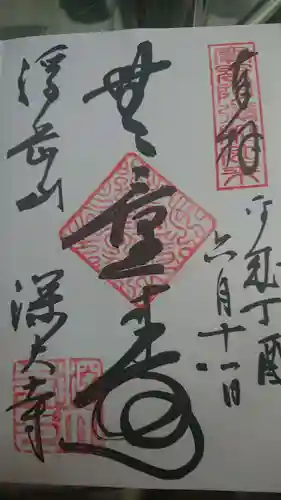 奉拝
平成丁酉
六月十一日
無量壽
浮岳山
深大寺